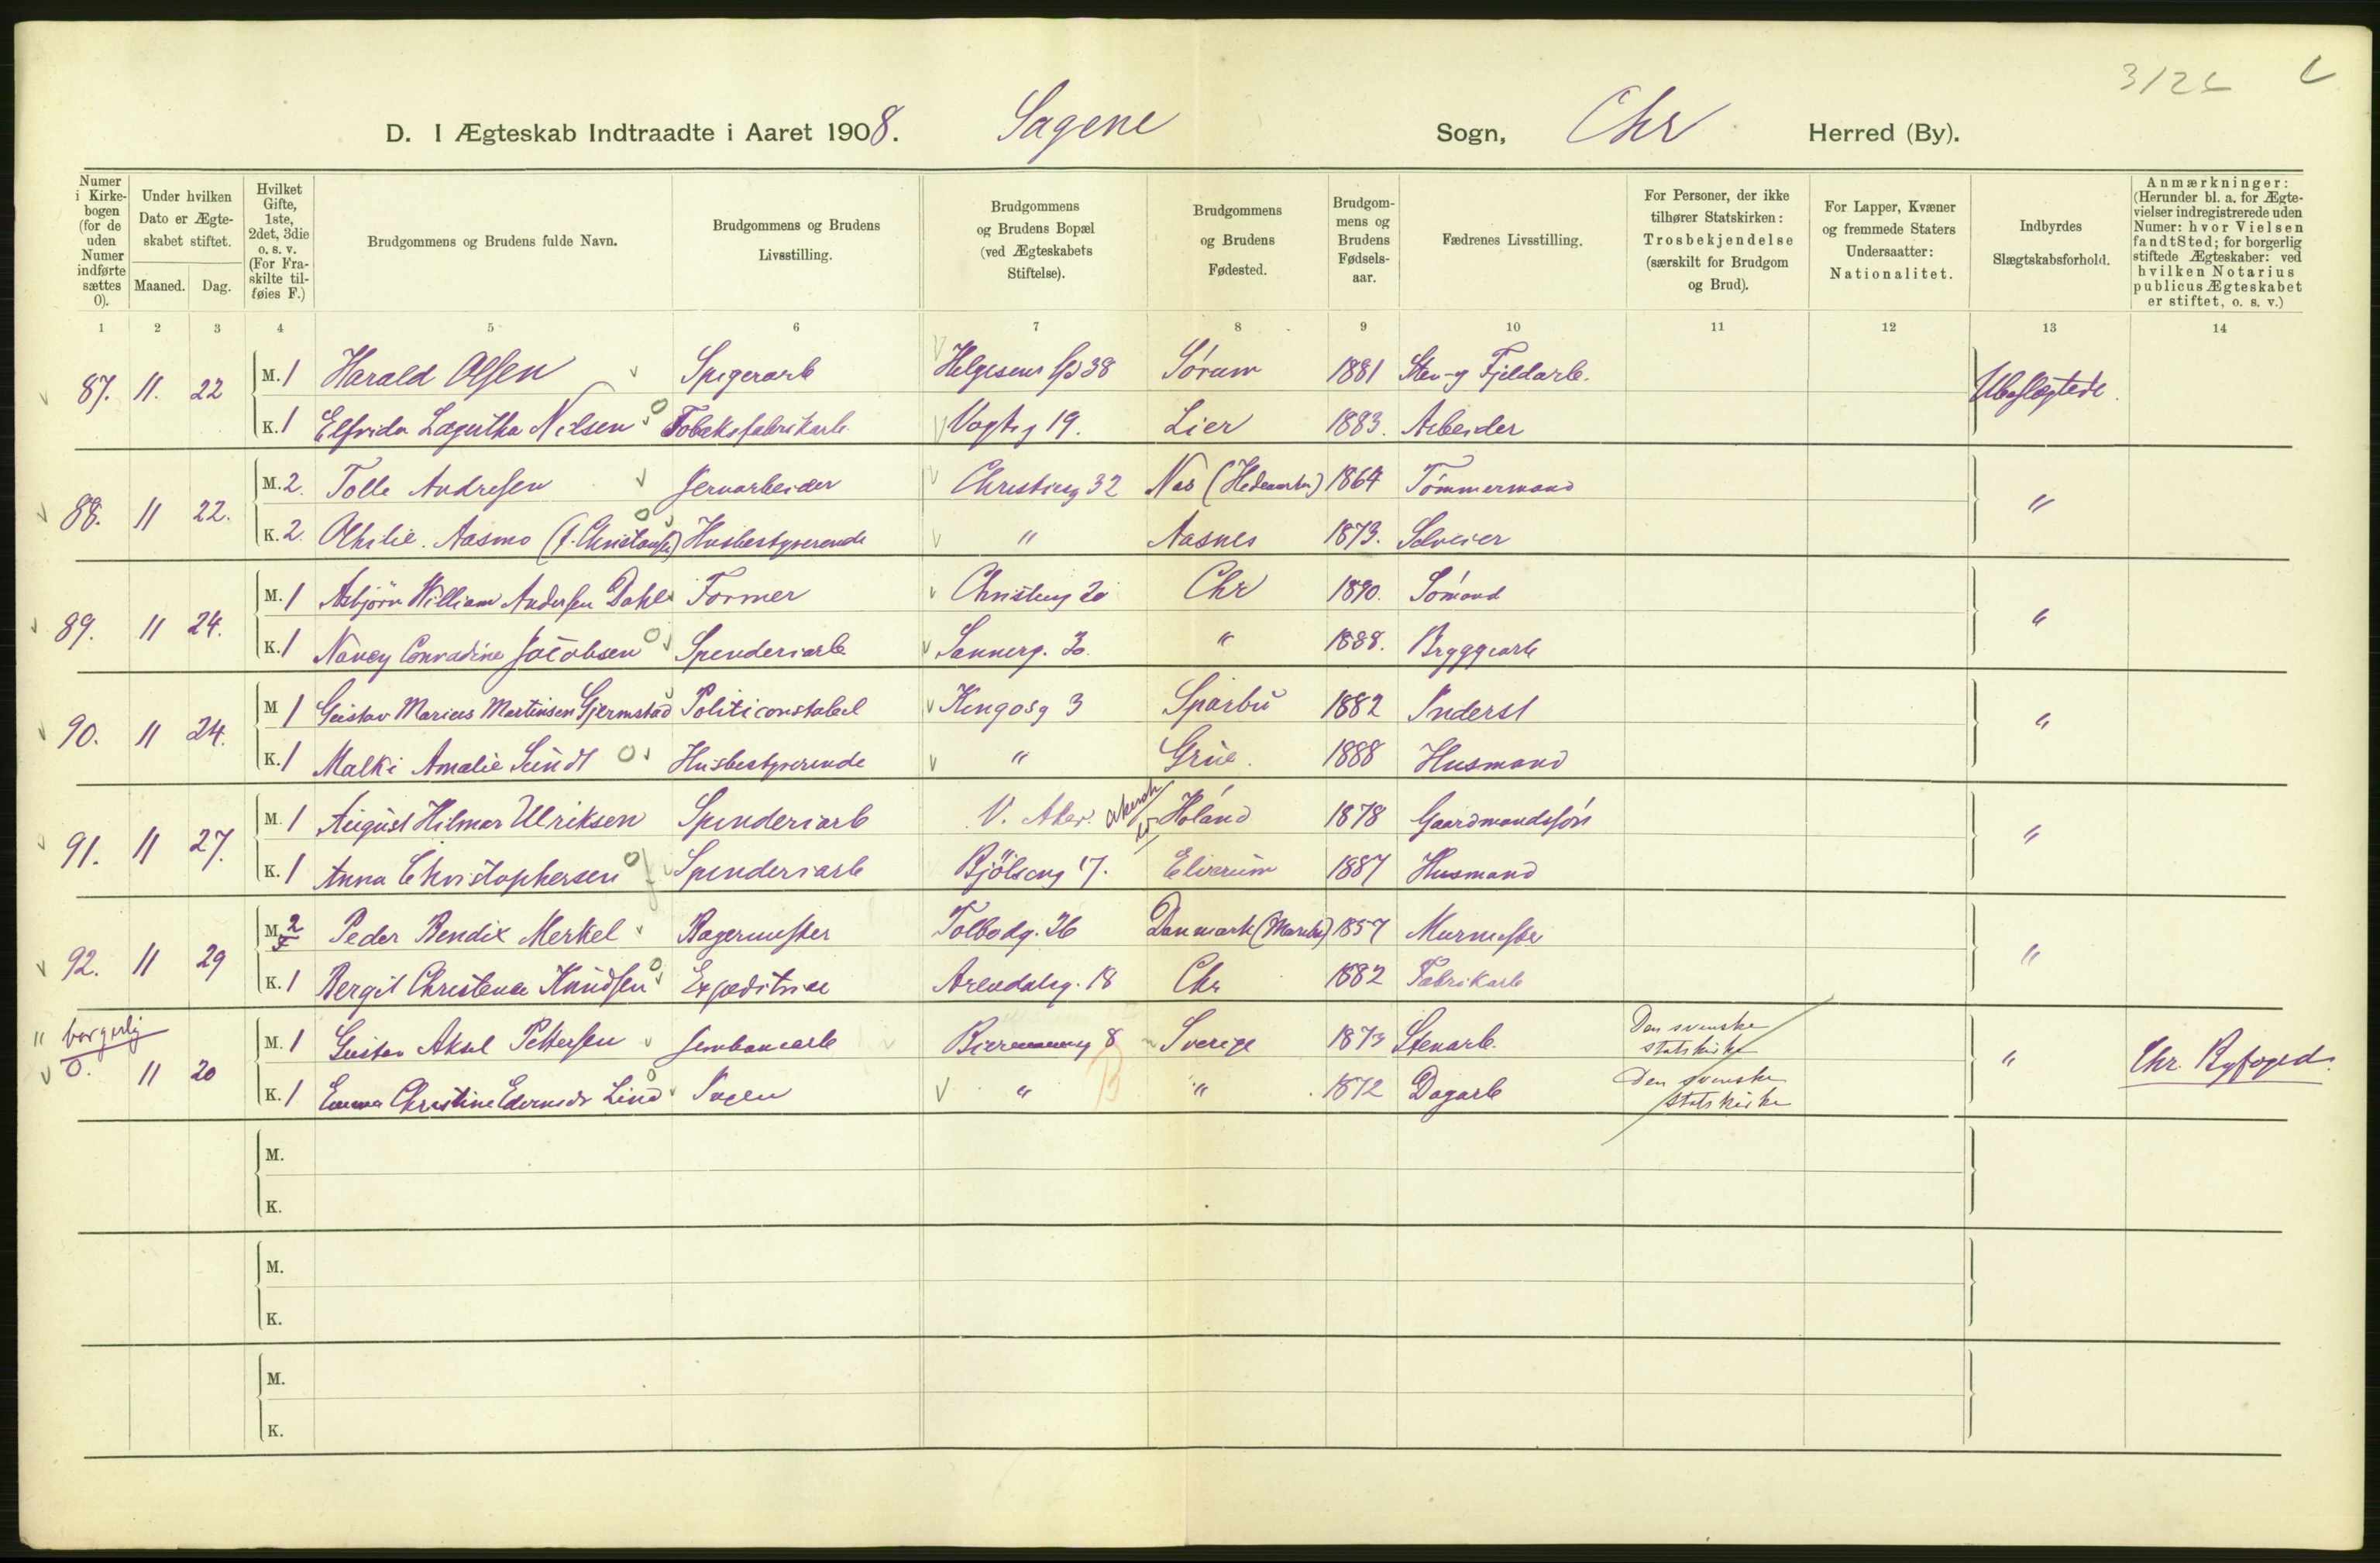 3126
D. I Ægteskab Indtraadte i Aaret 1908. Sagene Sogn, Chr Herred (By).
Numer i Kirkebogen (for de uden Numer indførte sættes 0).
Under hvilken Dato er Ægteskabet stiftet.
Maaned. Dag.
Hvilket Gifte, 1ste, 2det, 3die o. s. v. (For Fraskilte tilføies F.)
Brudgommens og Brudens fulde Navn.
Brudgommens og Brudens Livsstilling.
Brudgommens og Brudens Bopæl (ved Ægteskabets Stiftelse).
Brudgommens og Brudens Fødested.
Brudgommens og Brudens Fødselsaar.
Fædrenes Livsstilling.
For Personer, der ikke tilhører Statskirken: Trosbekjendelse (særskilt for Brudgom og Brud).
For Lapper, Kvæner og fremmede Staters Undersaatter: Nationalitet.
Indbyrdes Slægtskabsforhold.
Anmærkninger: (Herunder bl. a. for Ægtevielser indregistrerede uden Numer: hvor Vielsen fandt Sted; for borgerlig stiftede Ægteskaber: ved hvilken Notarius publicus Ægteskabet er stiftet, o. s. v.)
1 2 3 4 5 6 7 8 9 10 11 12 13 14
87. 11. 22 M. 1 Harald Olsen Spigerarb Helgesens gd 38 Sórum 1881 Sten-og Fjeldarb. Ubeslægtede
K. 1 Elfrida Lagertha Nilsen Tobaksfabrikarb. Vogtsg 19. Lier 1883. Arbeider
88. 11 22. M. 2. Tolle Andresen Jernarbeider Christiesg 32 Nes (Hedemarken) 1864 Tómmermand "
K. 2. Othilie Aasmo (f. Christiansen) Husbestyrerende " Aasnes 1873. Selveier
89. 11 24. M. 1 Asbjörn William Andersen Dahl Former Christiesg 20 Chr 1890. Sómand "
K. 1 Nancy Conradine Jacobsen Spinderiarb Sannerg. 3. " 1888. Bryggearb
90. 11 24. M 1 Gustav Marius Martinsen Gjermstad Politiconstabel Kingosg 3 Sparbu 1882 Inderst "
K. 1 Malki Amalie Sundt Husbestyrerende " Grue. 1888 Husmand
91. 11 27. M. 1 August Hilmar Ulriksen Spinderiarb V. Aker. Akersh Höland 1878 Gaardmandssön "
K. 1 Anna Christophersen Spinderiarb Bjölseng 17. Elverum 1887 Husmand
92. 11 29 M. 2 F Peder Bendix Merkel Bagermester Tolbodg. 26 Danmark (Maribo) 1857 Murmester "
K. 1 Bergit Christence Knudsen Expeditrice Arendalsg. 18 Chr 1882 Fabrikarb
" borgerlig
0. 11 20 M. 1 Gustav Aksel Pettersen Jernbanearb 8 Sverige 1873 Stenarb. Den svenske statskirke " Chr. Byfoged.
K. 1 Emma Christine Lind Ingen " B " 1872 Dagarb Den svenske statskirke
M.
K.
M.
K.
M.
K.